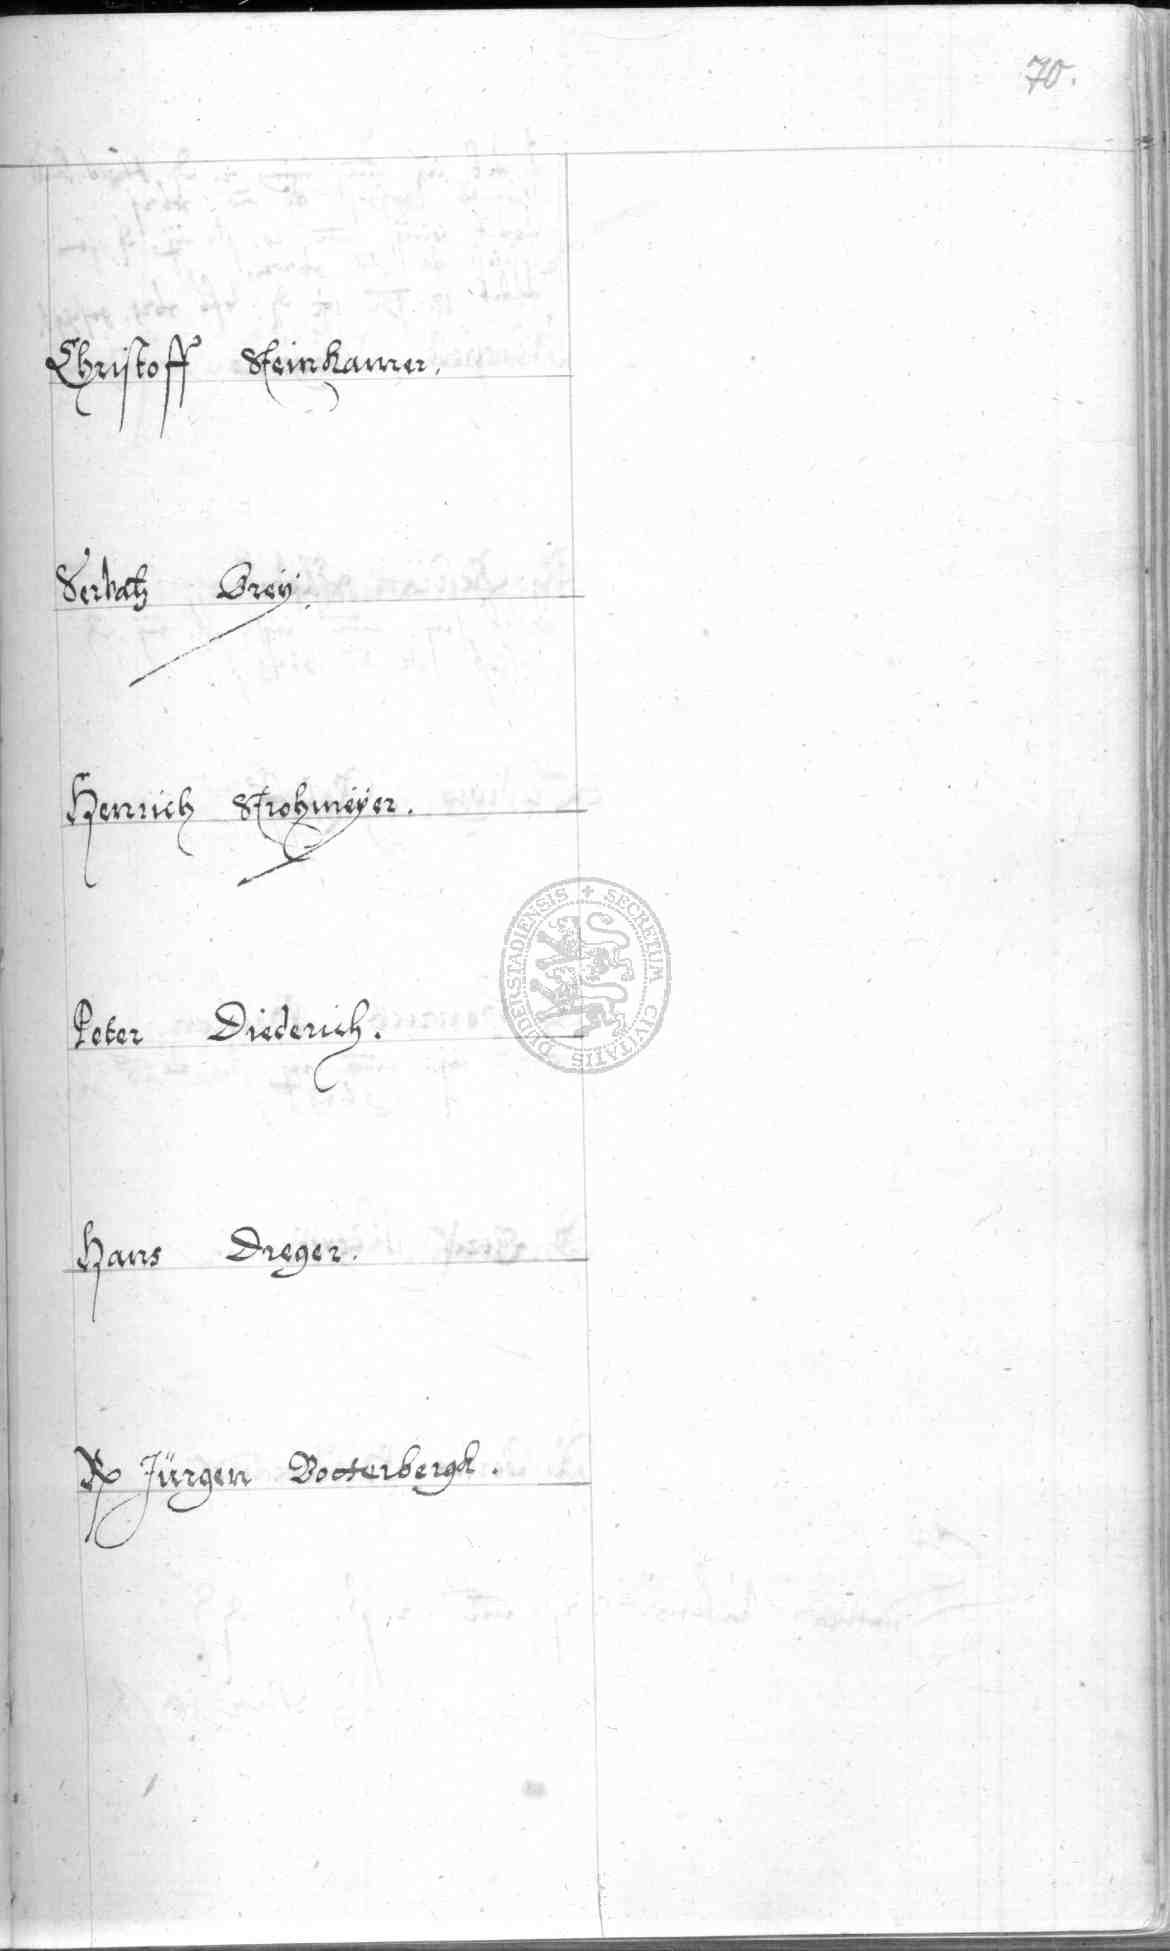 70.
Christoff Steinkamer.
Servatz Grey.
Henrich Strohmeyer.
Peter Diederich.
Hans Dreger.
Jürgen Botterbergk.
SECRETUM CIVITATIS DUDERSTADIENSIS